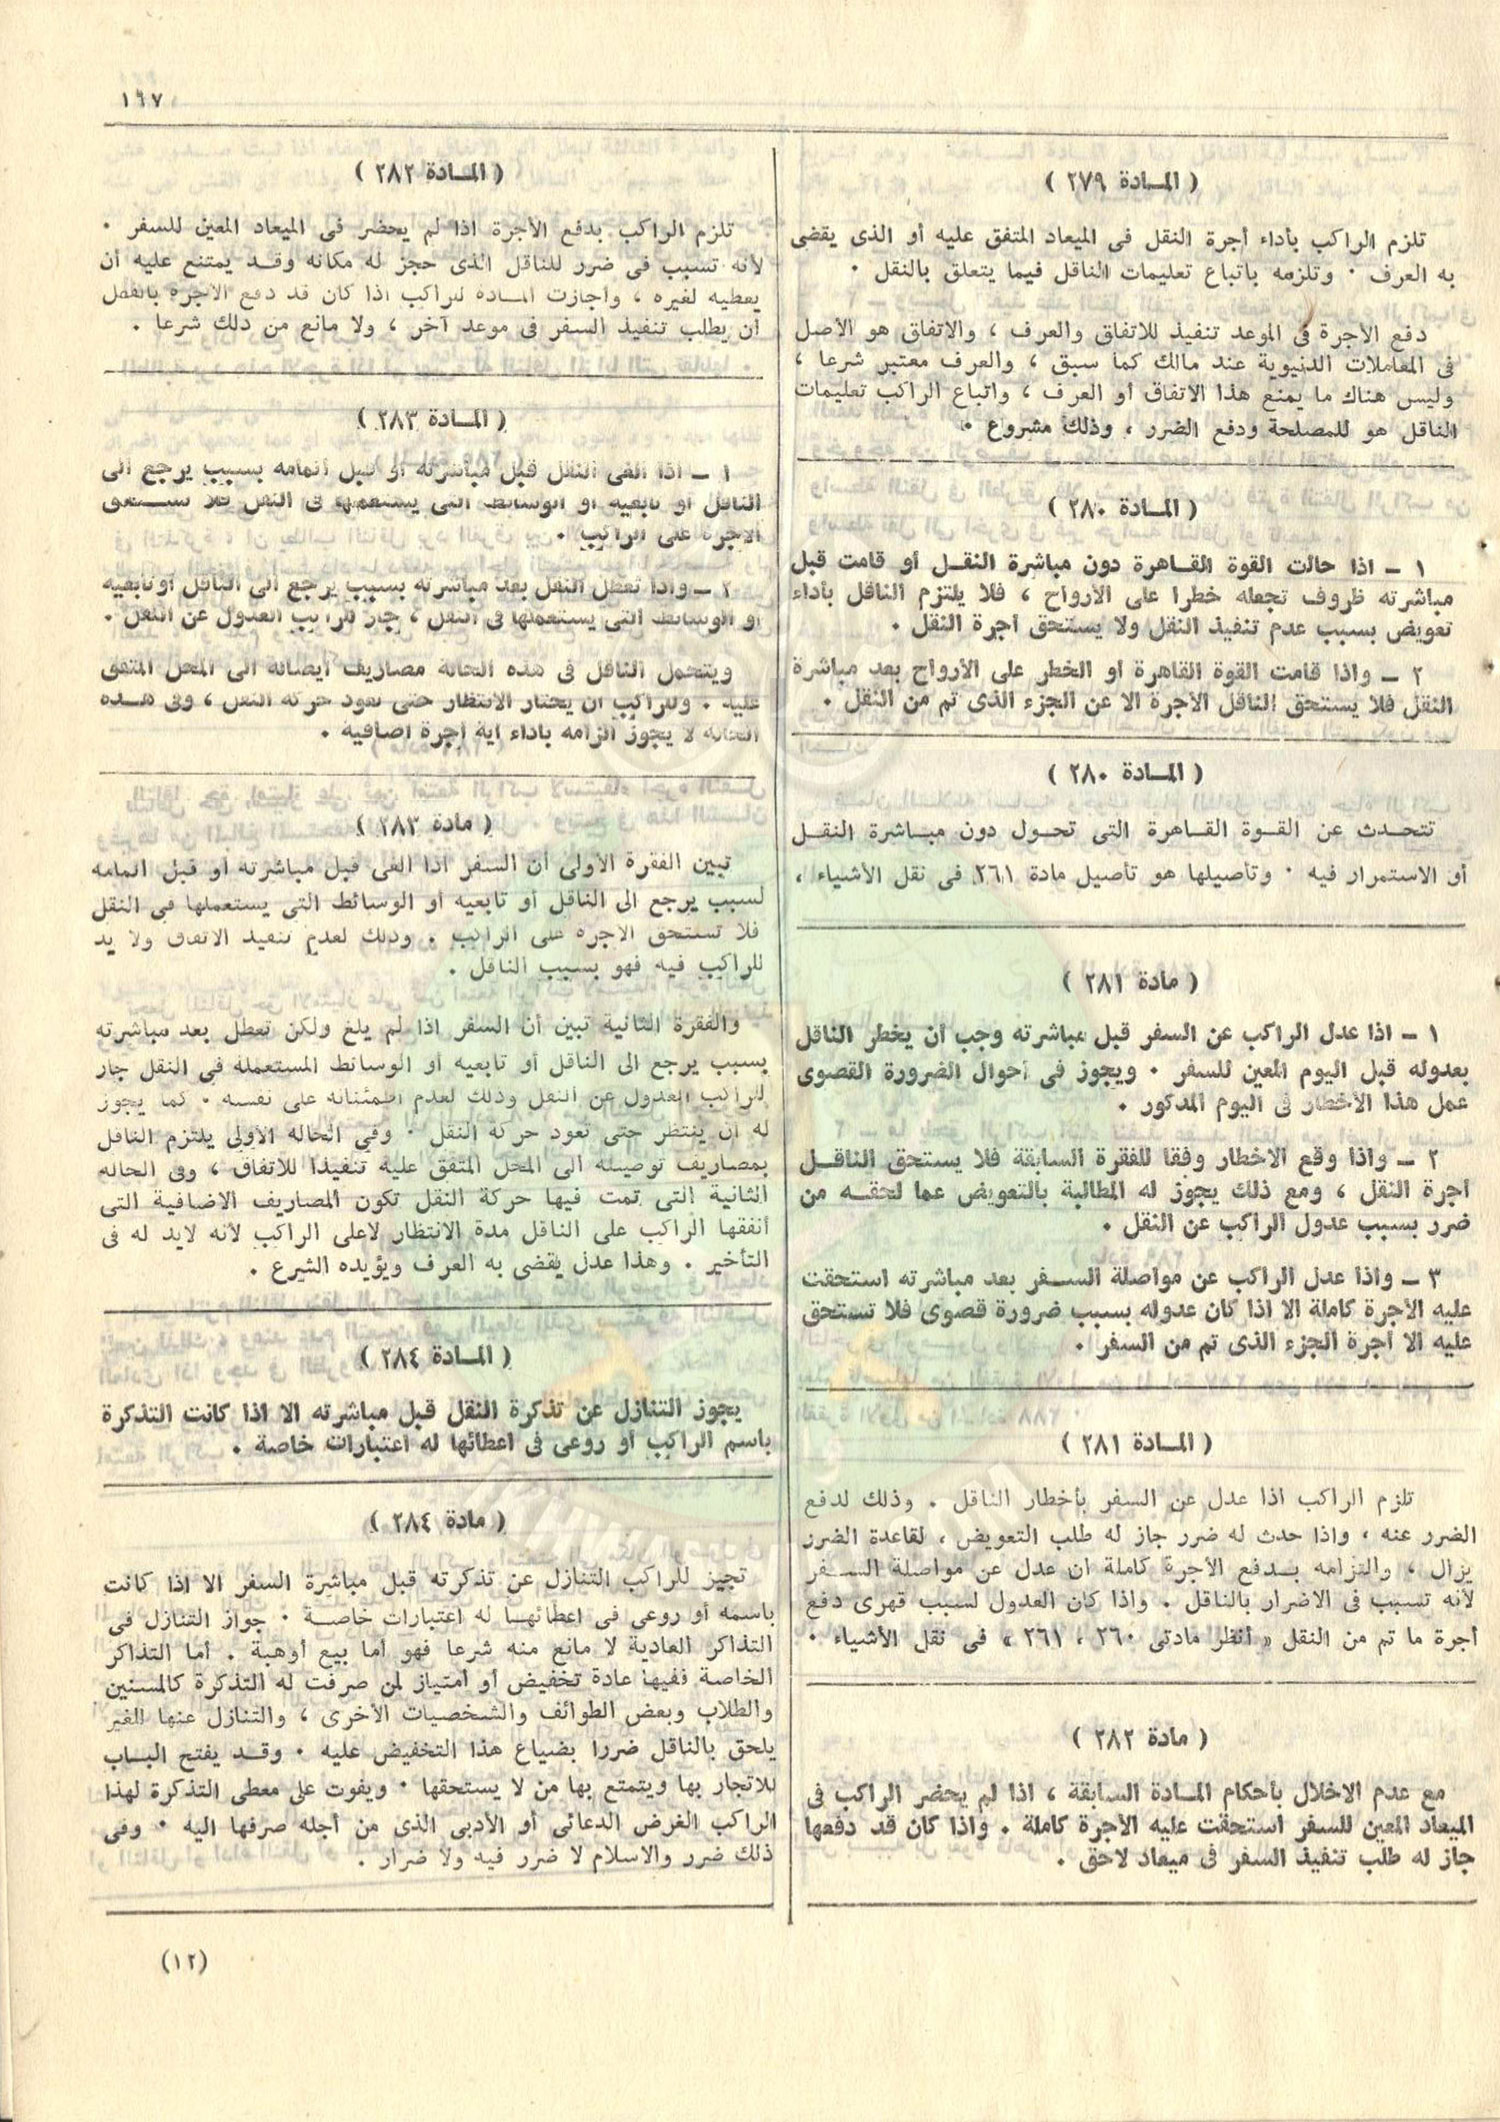 ١٦٧
( المــادة ٢٧٩ )
تلزم الراكب بأداء أجرة النقل فى الميعاد المتفق عليه أو الذى يقضى
به العرف ٠ وتلزمه باتباع تعليمات الناقل فيما يتعلق بالنقل ٠
دفع الأجرة فى الموعد تنفيذ للاتفاق والعرف ، والاتفاق هو الأصل
فى المعاملات الدنيوية عند مالك كما سبق ، والعرف معتبر شرعا ،
وليس هناك ما يمنع هذا الاتفاق أو العرف ، واتباع الراكب تعليمات
الناقل هو للمصلحة ودفع الضرر ، وذلك مشروع ٠
( المــادة ٢٨٠ )
١ – اذا حالت القوة القــاهرة دون مباشرة النقــل أو قامت قبل
مباشرته ظروف تجعله خطرا على الأرواح ، فلا يلتزم الناقل بأداء
تعويض بسبب عدم تنفيذ النقل ولا يستحق أجرة النقل ٠
٢ – واذا قامت القوة القاهرة أو الخطر على الأرواح بعد مباشرة
النقل فلا يستحق الناقل الأجرة الا عن الجزء الذى تم من النقل ٠
( المــادة ٢٨٠ )
تتحــدث عن القــوة القــاهرة التى تحــول دون مبــاشرة النقــل
أو الاستمرار فيه ٠ وتأصيلها هو تأصيل مادة ٢٦١ فى نقل الأشياء ،
( مادة ٢٨١ )
١ – اذا عدل الراكب عن السفر قبل مباشرته وجب أن يخطر الناقل
بعدوله قبل اليوم المعين للسفر ٠ ويجوز فى أحوال الضرورة القصوى
عمل هذا الأخطار فى اليوم المذكور ٠
٢ – واذا وقع الاخطار وفقا للفقرة السابقة فلا يستحق الناقــل
أجرة النقل ، ومع ذلك يجوز له المطالبة بالتعويض عما لحقــه من
ضرر بسبب عدول الراكب عن النقل ٠
٣ – واذا عدل الراكب عن مواصلة الســفر بعد مباشرته استحقت
عليه الأجرة كاملة الا اذا كان عدوله بسبب ضرورة قصوى فلا تستحق
عليه الا أجرة الجزء الذى تم من السفر ٠
( المــادة ٢٨١ )
تلزم الراكب اذا عدل عن السفر بأخطار الناقل ٠ وذلك لدفع
الضرر عنه ، واذا حدث له ضرر جاز له طلب التعويض ، لقاعدة الضرر
يزال ، والتزامه بــدفع الأجرة كاملة ان عدل عن مواصلة الســفر
لأنه تسبب فى الاضرار بالناقل ٠ واذا كان العدول لسبب قهرى دفع
أجرة ما تم من النقل « أنظر مادتى ٢٦٠ ، ٢٦١ » فى نقل الأشياء ٠
( مادة ٢٨٢ )
مع عدم الاخلال بأحكام المــادة السابقة ، اذا لم يحضر الراكب فى
الميعاد المعين للسفر استحقت عليه الأجرة كاملة ٠ واذا كان قد دفعها
جاز له طلب تنفيذ السفر فى ميعاد لاحق ٠
( المــادة ٢٨٢ )
تلزم الراكب بدفع الأجرة اذا لم يحضر فى الميعاد المعين للسفر ٠
لأنه تسبب فى ضرر للناقل الذى حجز له مكانه وقــد يمتنع عليه أن
يعطيه لغيره ، وأجازت المــادة للراكب اذا كان قد دفع الأجرة بالفعل
أن يطلب تنفيذ السفر فى موعد آخر ، ولا مانع من ذلك شرعا ٠
( المــادة ٢٨٣ )
١ – اذا الغى النقل قبل مباشرته أو قبل اتمامه بسبب يرجع الى
الناقل أو تابعيه أو الوسائط التى يستعملها فى النقل فلا تستحق
الأجرة على الراكب ٠
٢ – واذا تعطل النقل بعد مباشرته بسبب يرجع الى الناقل أو تابعيه
أو الوسائط التى يستعملها فى النقل ، جاز للراكب العدول عن النقل ٠
ويتحمل الناقل فى هذه الحالة مصاريف ايصاله الى المحل المتفق
عليه ٠ وللراكب أن يختار الانتظار حتى تعود حركة النقل ، وفى هــذه
الحالة لا يجوز الزامه بأداء أية أجرة اضافية ٠
( مادة ٢٨٣ )
تبين الفقرة الأولى أن السفر اذا الغى قبل مباشرته أو قبل اتمامه
لسبب يرجع الى الناقل أو تابعيه أو الوسائط التى يستعملها فى النقل
فلا تستحق الأجرة على الراكب ٠ وذلك لعدم تنفيذ الاتفاق ولا يد
للراكب فيه فهو بسبب الناقل ٠
والفقرة الثانية تبين أن السفر اذا لم يلغ ولكن تعطل بعد مباشرته
بسبب يرجع الى الناقل أو تابعيه أو الوسائط المستعملة فى النقل جاز
للراكب العدول عن النقل وذلك لعدم اطمئنانه على نفسه ٠ كما يجوز
له أن ينتظر حتى تعود حركة النقل ٠ وفى الحالة الأولى يلتزم الناقل
بمصاريف توصيله الى المحل المتفق عليه تنفيذا للاتفاق ، وفى الحالة
الثانية التى تمت فيها حركة النقل تكون المصاريف الاضافية التى
أنفقها الراكب على الناقل مدة الانتظار لاعلى الراكب لأنه لايد له فى
التأخير ٠ وهذا عدل يقضى به العرف ويؤيده الشرع ٠
( المــادة ٢٨٤ )
يجوز التنازل عن تذكرة النقل قبل مباشرته الا اذا كانت التذكرة
باسم الراكب أو روعى فى اعطائها له اعتبارات خاصة ٠
( مادة ٢٨٤ )
تجيز للراكب التنازل عن تذكرته قبل مباشرة السفر الا اذا كانت
باسمه أو روعى فى اعطائهــا له اعتبارات خاصــة ٠ جواز التنازل فى
التذاكر العادية لا مانع منه شرعا فهو أما بيع أوهبة ٠ أما التذاكر
الخاصة ففيها عادة تخفيض أو أمتياز لمن صرفت له التذكرة كالمسنين
والطلاب وبعض الطوائف والشخصيات الأخرى ، والتنازل عنها للغير
يلحق بالناقل ضررا بضياع هذا التخفيض عليه ٠ وقــد يفتح البــاب
للاتجار بها ويتمتع بها من لا يستحقها ٠ ويفوت على معطى التذكرة لهذا
الراكب الغرض الدعائى أو الأدبى الذى من أجله صرفها اليه ٠ وفى
ذلك ضرر والاسلام لا ضرر فيه ولا ضرار ٠
(١٢)